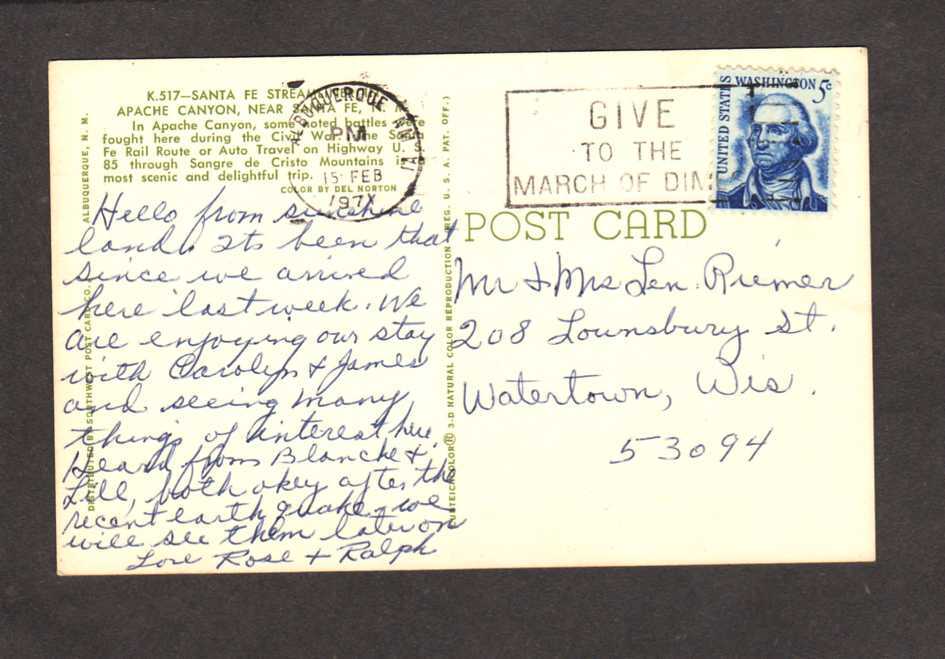 K.517—SANTA FE
APACHE CANYON, NEAR SANTA FE,
In Apache Canyon, some noted battles were
fought here during the Civil War. The Santa
Fe Rail Route or Auto Travel on Highway U. S.
85 through Sangre de Cristo Mountains is
most scenic and delightful trip.
COLOR BY DEL NORTON
ALBUQUERQUE N.M.
PM
15 FEB
197
GIVE
TO THE
MARCH OF DIM
UNITED STATES
WASHINGTON 5c
POST CARD
Hello from sunshine
land. Its been that
since we arrived
here last week. We
are enjoying our stay
with Carolyn & James
and seeing many
things of interest here.
Heard from Blanche &
Lill, both okey after the
recent earth quake. we
will see them later on
Love Rose + Ralph
Mr & Mrs Len. Riemer
208 Lounsbury St.
Watertown, Wis.
53094
DISTRIBUTED BY SOUTHWEST POST CARD CO., ALBUQUERQUE, N. M.
3-D NATURAL COLOR REPRODUCTION (REG. U. S. A. PAT. OFF.)